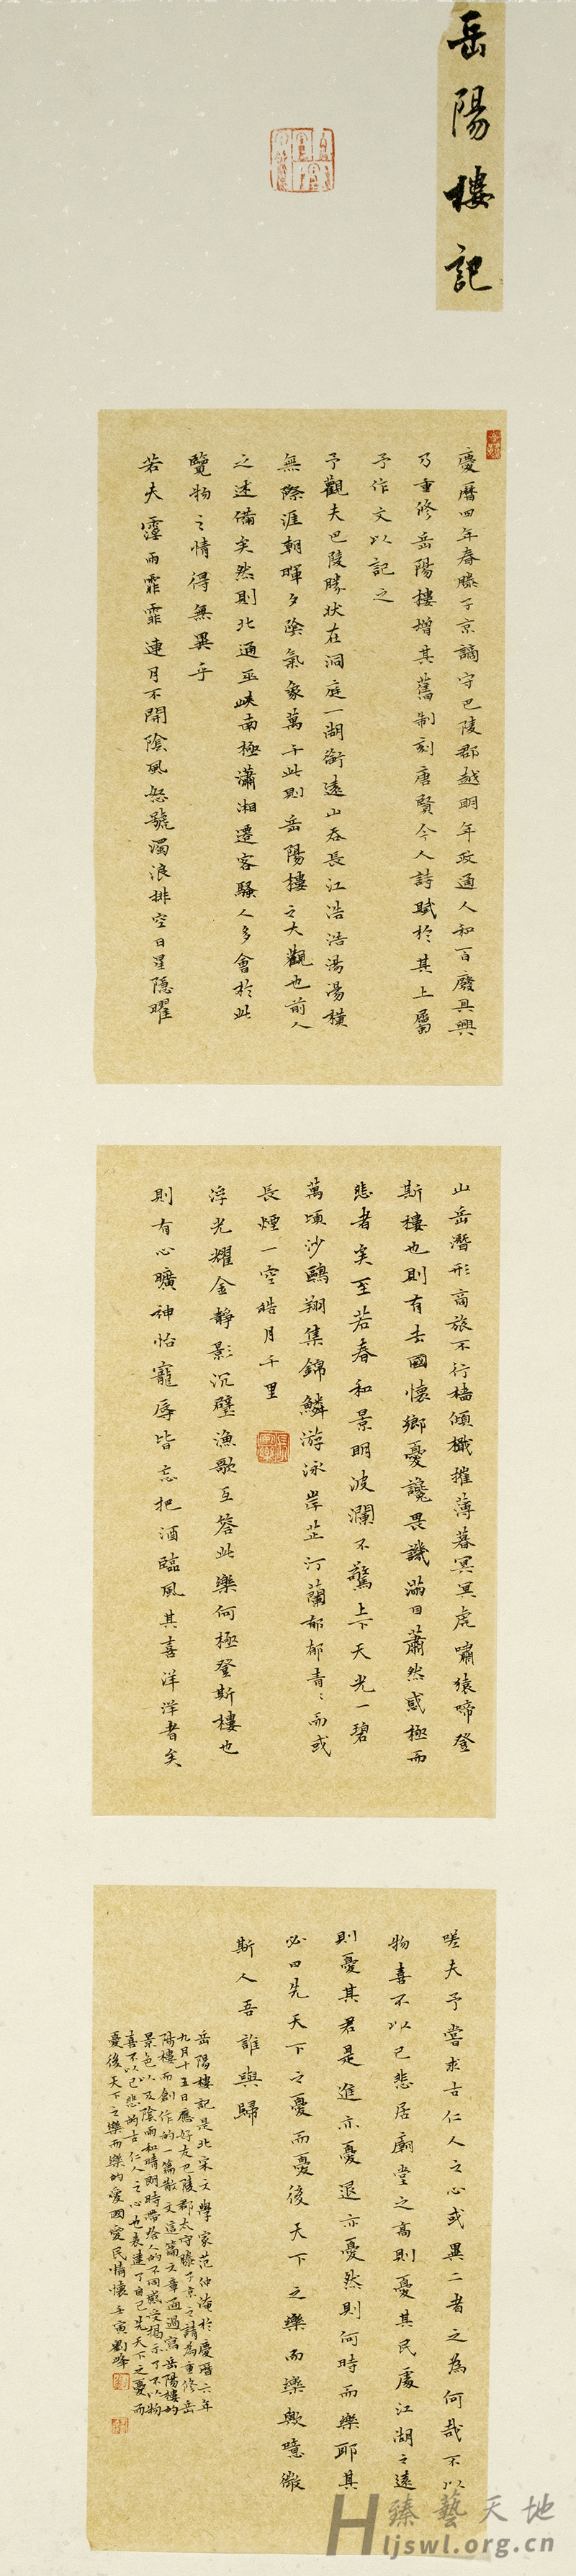 岳陽樓記
慶曆四年春滕子京謫守巴陵郡越明年政通人和百廢具興
乃重修岳陽樓增其舊制刻唐賢今人詩賦於其上屬
予作文以記之
予觀夫巴陵勝狀在洞庭一湖銜遠山吞長江浩浩湯湯橫
無際涯朝暉夕陰氣象萬千此則岳陽樓之大觀也前人
之述備矣然則北通巫峽南極瀟湘遷客騷人多會於此
覽物之情得無異乎
若夫霪雨霏霏連月不開陰風怒號濁浪排空日星隱曜
山岳潛形商旅不行檣傾檝摧薄暮冥冥虎嘯猿啼登
斯樓也則有去國懷鄉憂讒畏譏滿目蕭然感極而
悲者矣至若春和景明波瀾不驚上下天光一碧
萬頃沙鷗翔集錦鱗游泳岸芷汀蘭郁郁青〻而或
長煙一空皓月千里
浮光耀金靜影沉璧漁歌互答此樂何極登斯樓也
則有心曠神怡寵辱皆忘把酒臨風其喜洋洋者矣
嗟夫予嘗求古仁人之心或異二者之為何哉不以
物喜不以己悲居廟堂之高則憂其民處江湖之遠
則憂其君是進亦憂退亦憂然則何時而樂耶其
必曰先天下之憂而憂後天下之樂而樂歟噫微
斯人吾誰與歸
岳陽樓記是北宋文學家范仲淹於慶曆六年
九月十五日應好友巴陵郡太守滕子京之請為重修岳
陽樓而創作的一篇散文這篇文章通過寫岳陽樓的
景色以及陰雨和晴朗時帶給人的不同感受揭示了不以物
喜不以己悲的古仁人之心也表達了自己先天下之憂而
憂後天下之樂而樂的愛國愛民情懷壬寅劉峰
臻藝天地
Hljswl.org.cn